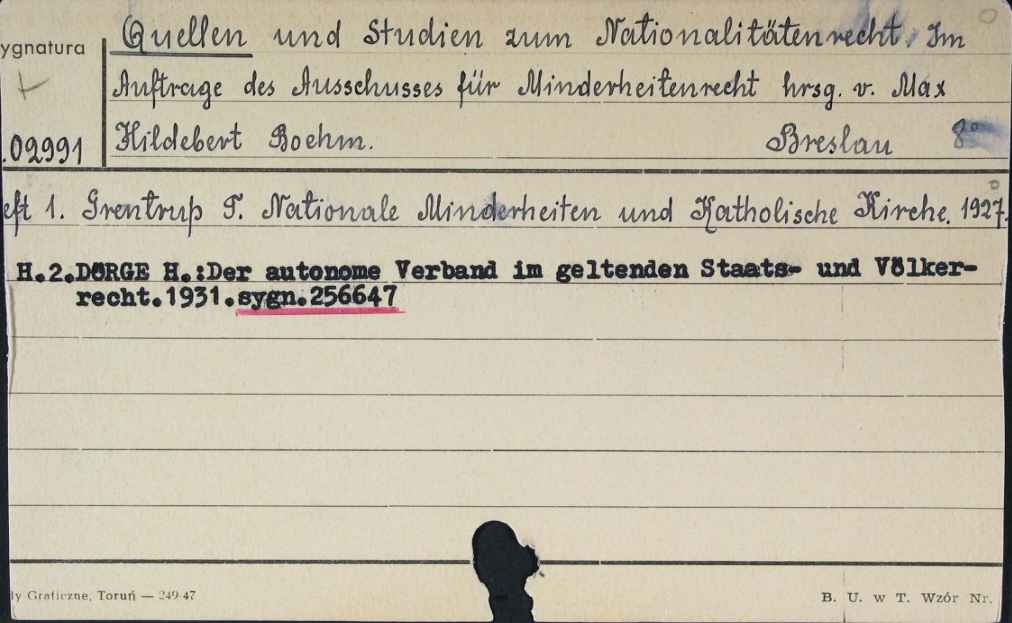 ygnatura
Quellen und Studien zum Nationalitätenrecht. Im
Auftrage des Ausschusses für Minderheitenrecht hrsg. v. Max
.02991 Hildebert Boehm. Breslau 8°
eft 1. Grentrup T. Nationale Minderheiten und Katholische Kirche. 1927.
H.2.DÖRGE H.:Der autonome Verband im geltenden Staats- und Völker-
recht.1931.sygn.256647
ly Graficzne, Toruń — 249-47 B. U. w T. Wzór Nr.